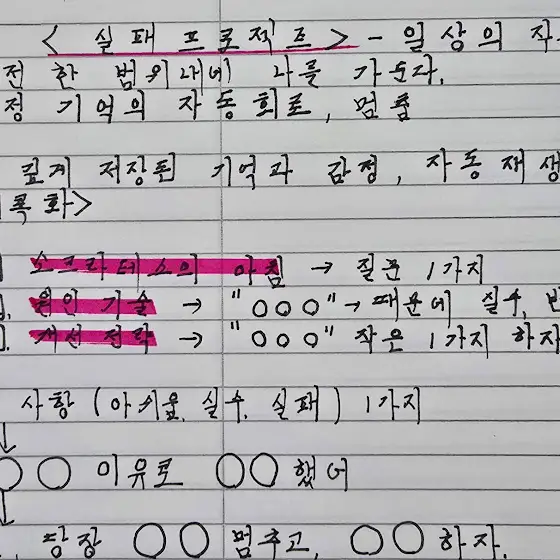 < 실패 프로젝트 > - 일상의 자
전한 범위내에 나를 가둔다.
정 기억의 자동회로, 멈춤
깊게 저장된 기억과 감정, 자동재생
폭화>
소크라테스의 아침 → 질문 1가지
원인 기술 → "○○○" → 때문에 실수, 반
개선 전략 → "○○○" 작은 1가지 하자
사항 (아쉬움, 실수, 실패) 1가지
↓
○○ 이유로 ○○했어
↓
당장 ○○ 멈추고, ○○하자.